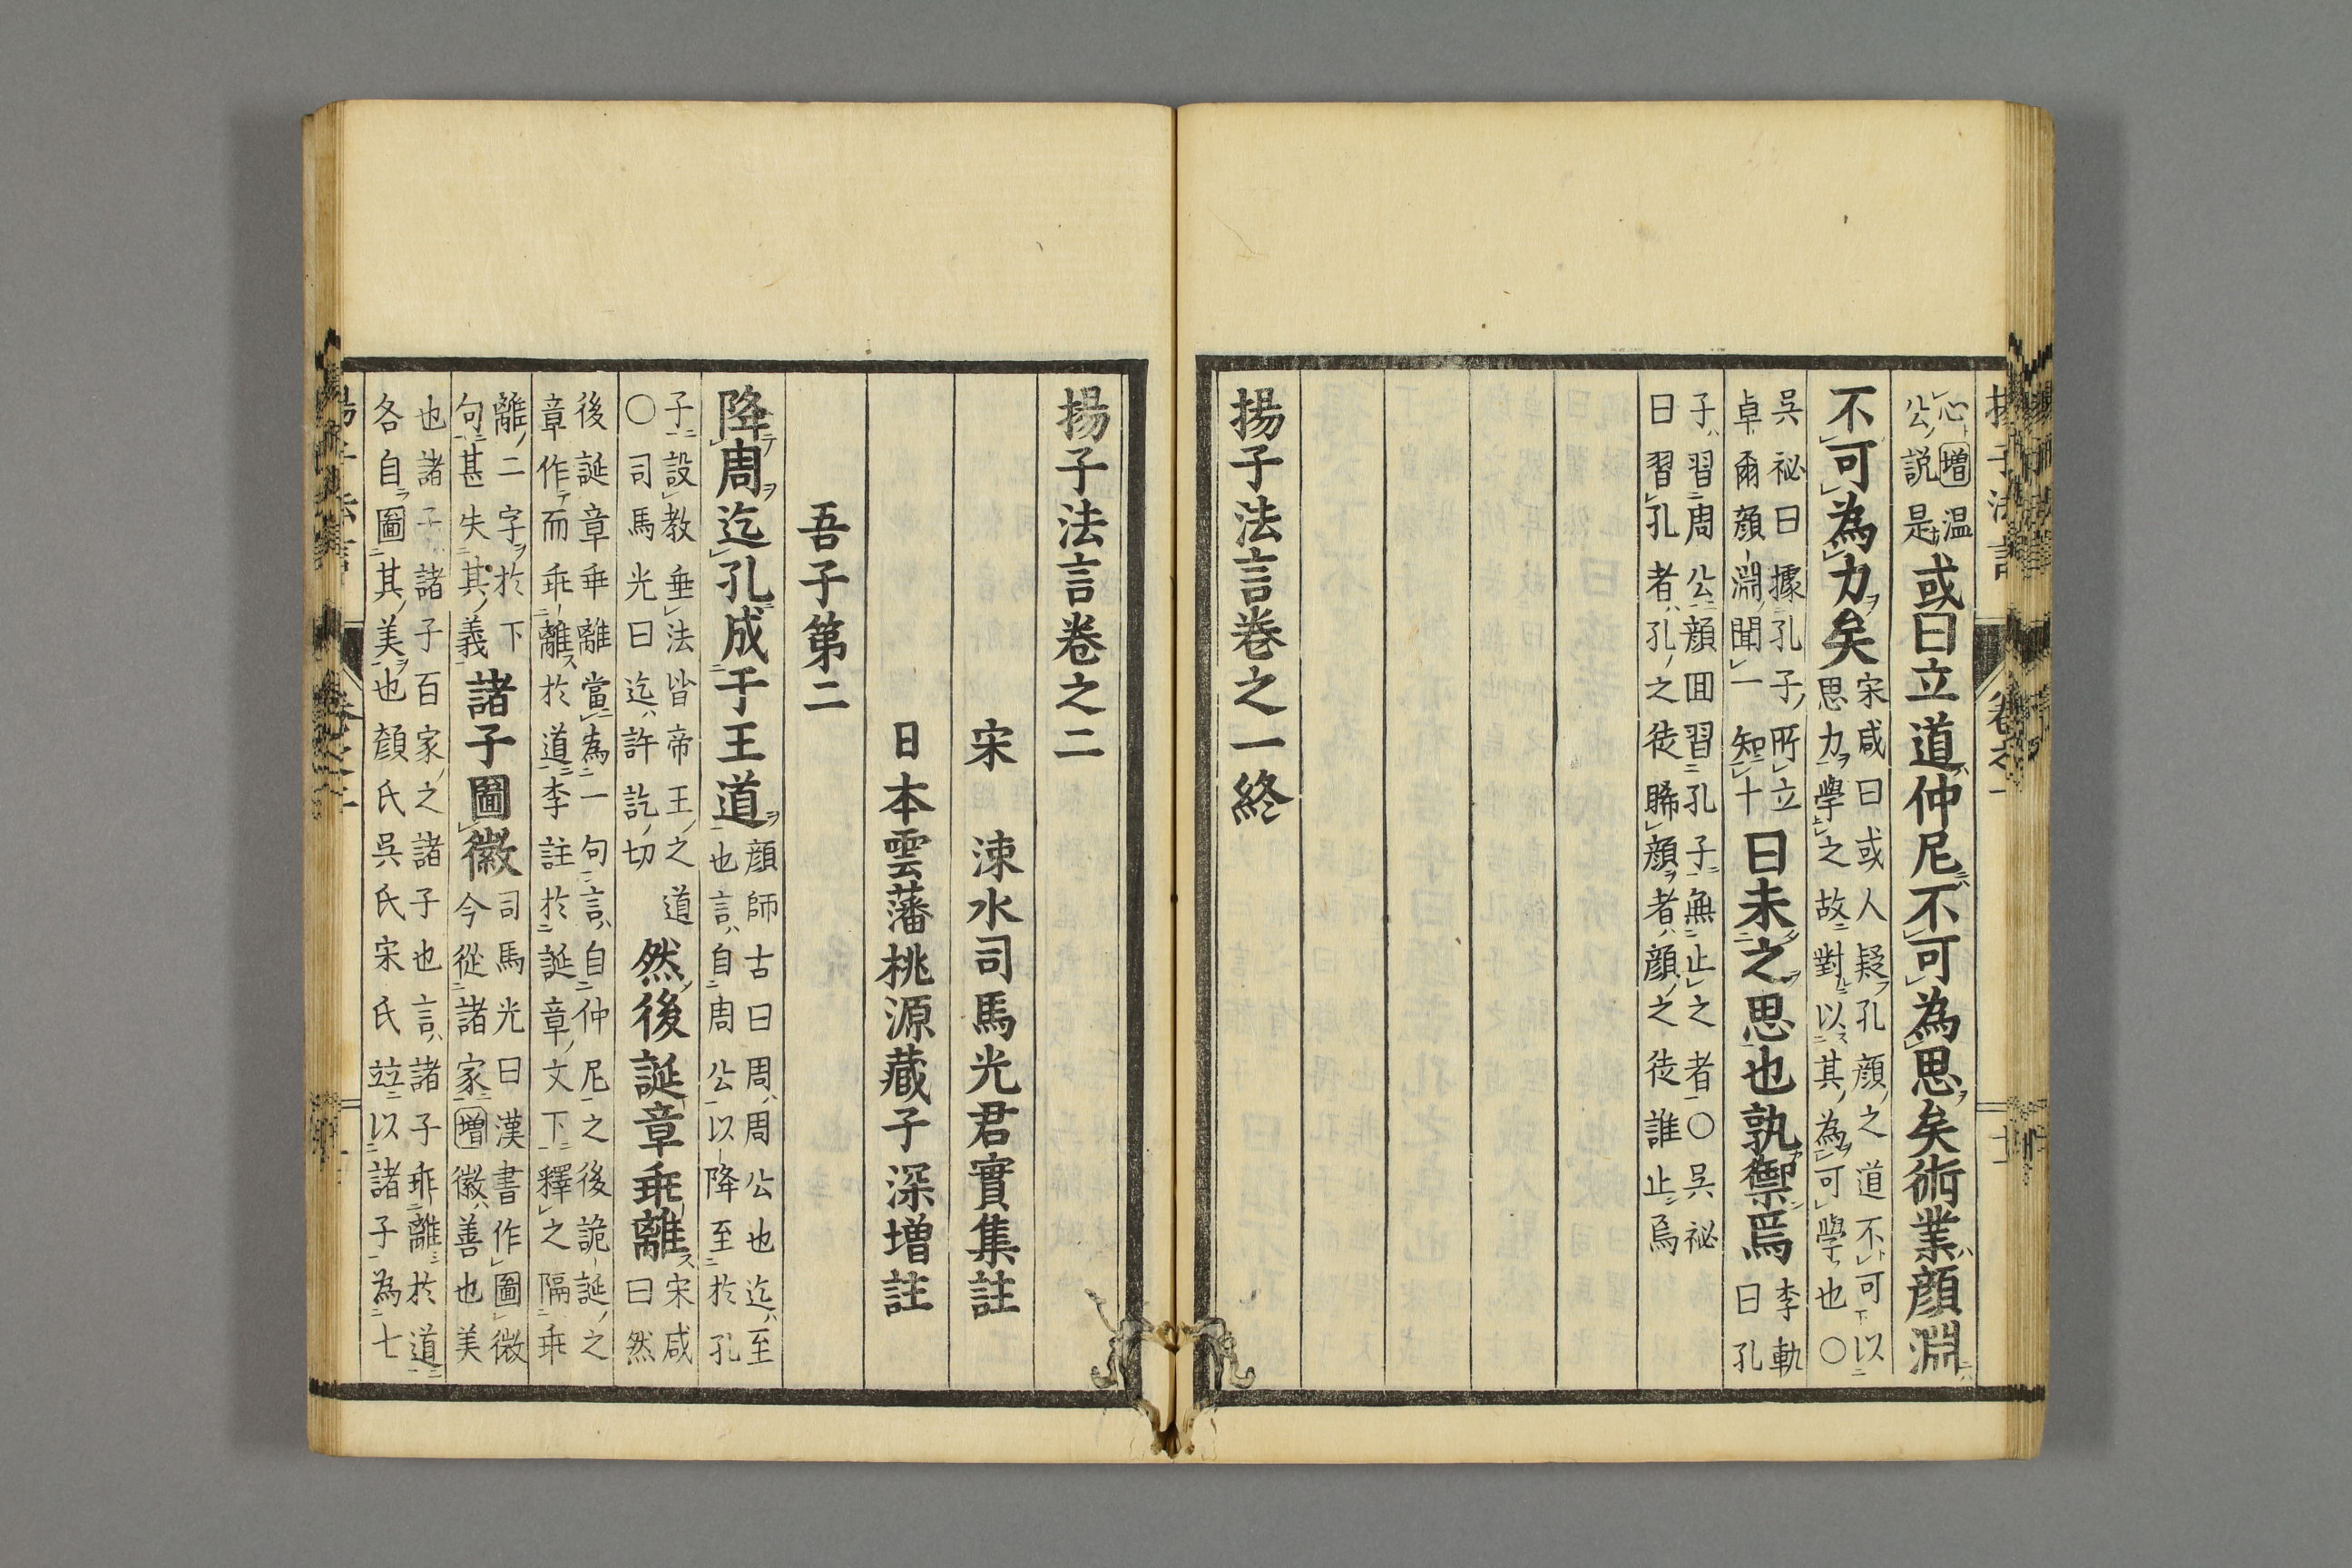 心増温公説是或曰立道仲尼不可為思矣術業顔淵
不可為力矣宋咸曰或人疑孔顔之道不可以思力學之故對以其為可學也〇
吳祕曰據孔子所立卓爾顔淵聞一知十曰未之思也孰禦焉李軌曰孔
子習周公顔囬習孔子無止之者〇吳祕曰習孔者孔之徒睎顔者顔之徒誰止焉
揚子法言卷之一終
揚子法言卷之二
宋 涑水司馬光君實集註
日本雲藩桃源藏子深増註
吾子第二
降周迄孔成于王道顔師古曰周周公也迄至也言自周公以降至於孔
子設教垂法皆帝王之道〇司馬光曰迄許訖切然後誕章乖離宋咸曰然
後誕章乖離當為一句言自仲尼之後詭誕之章作而乖離於道李註於誕章文下釋之隔乖
離二字於下句甚失其義諸子圖徽司馬光曰漢書作圖微今從諸家増徽善也美
也諸子諸子百家之諸子也言諸子乖離於道各自圖其美也顔氏吳氏宋氏竝以諸子為七